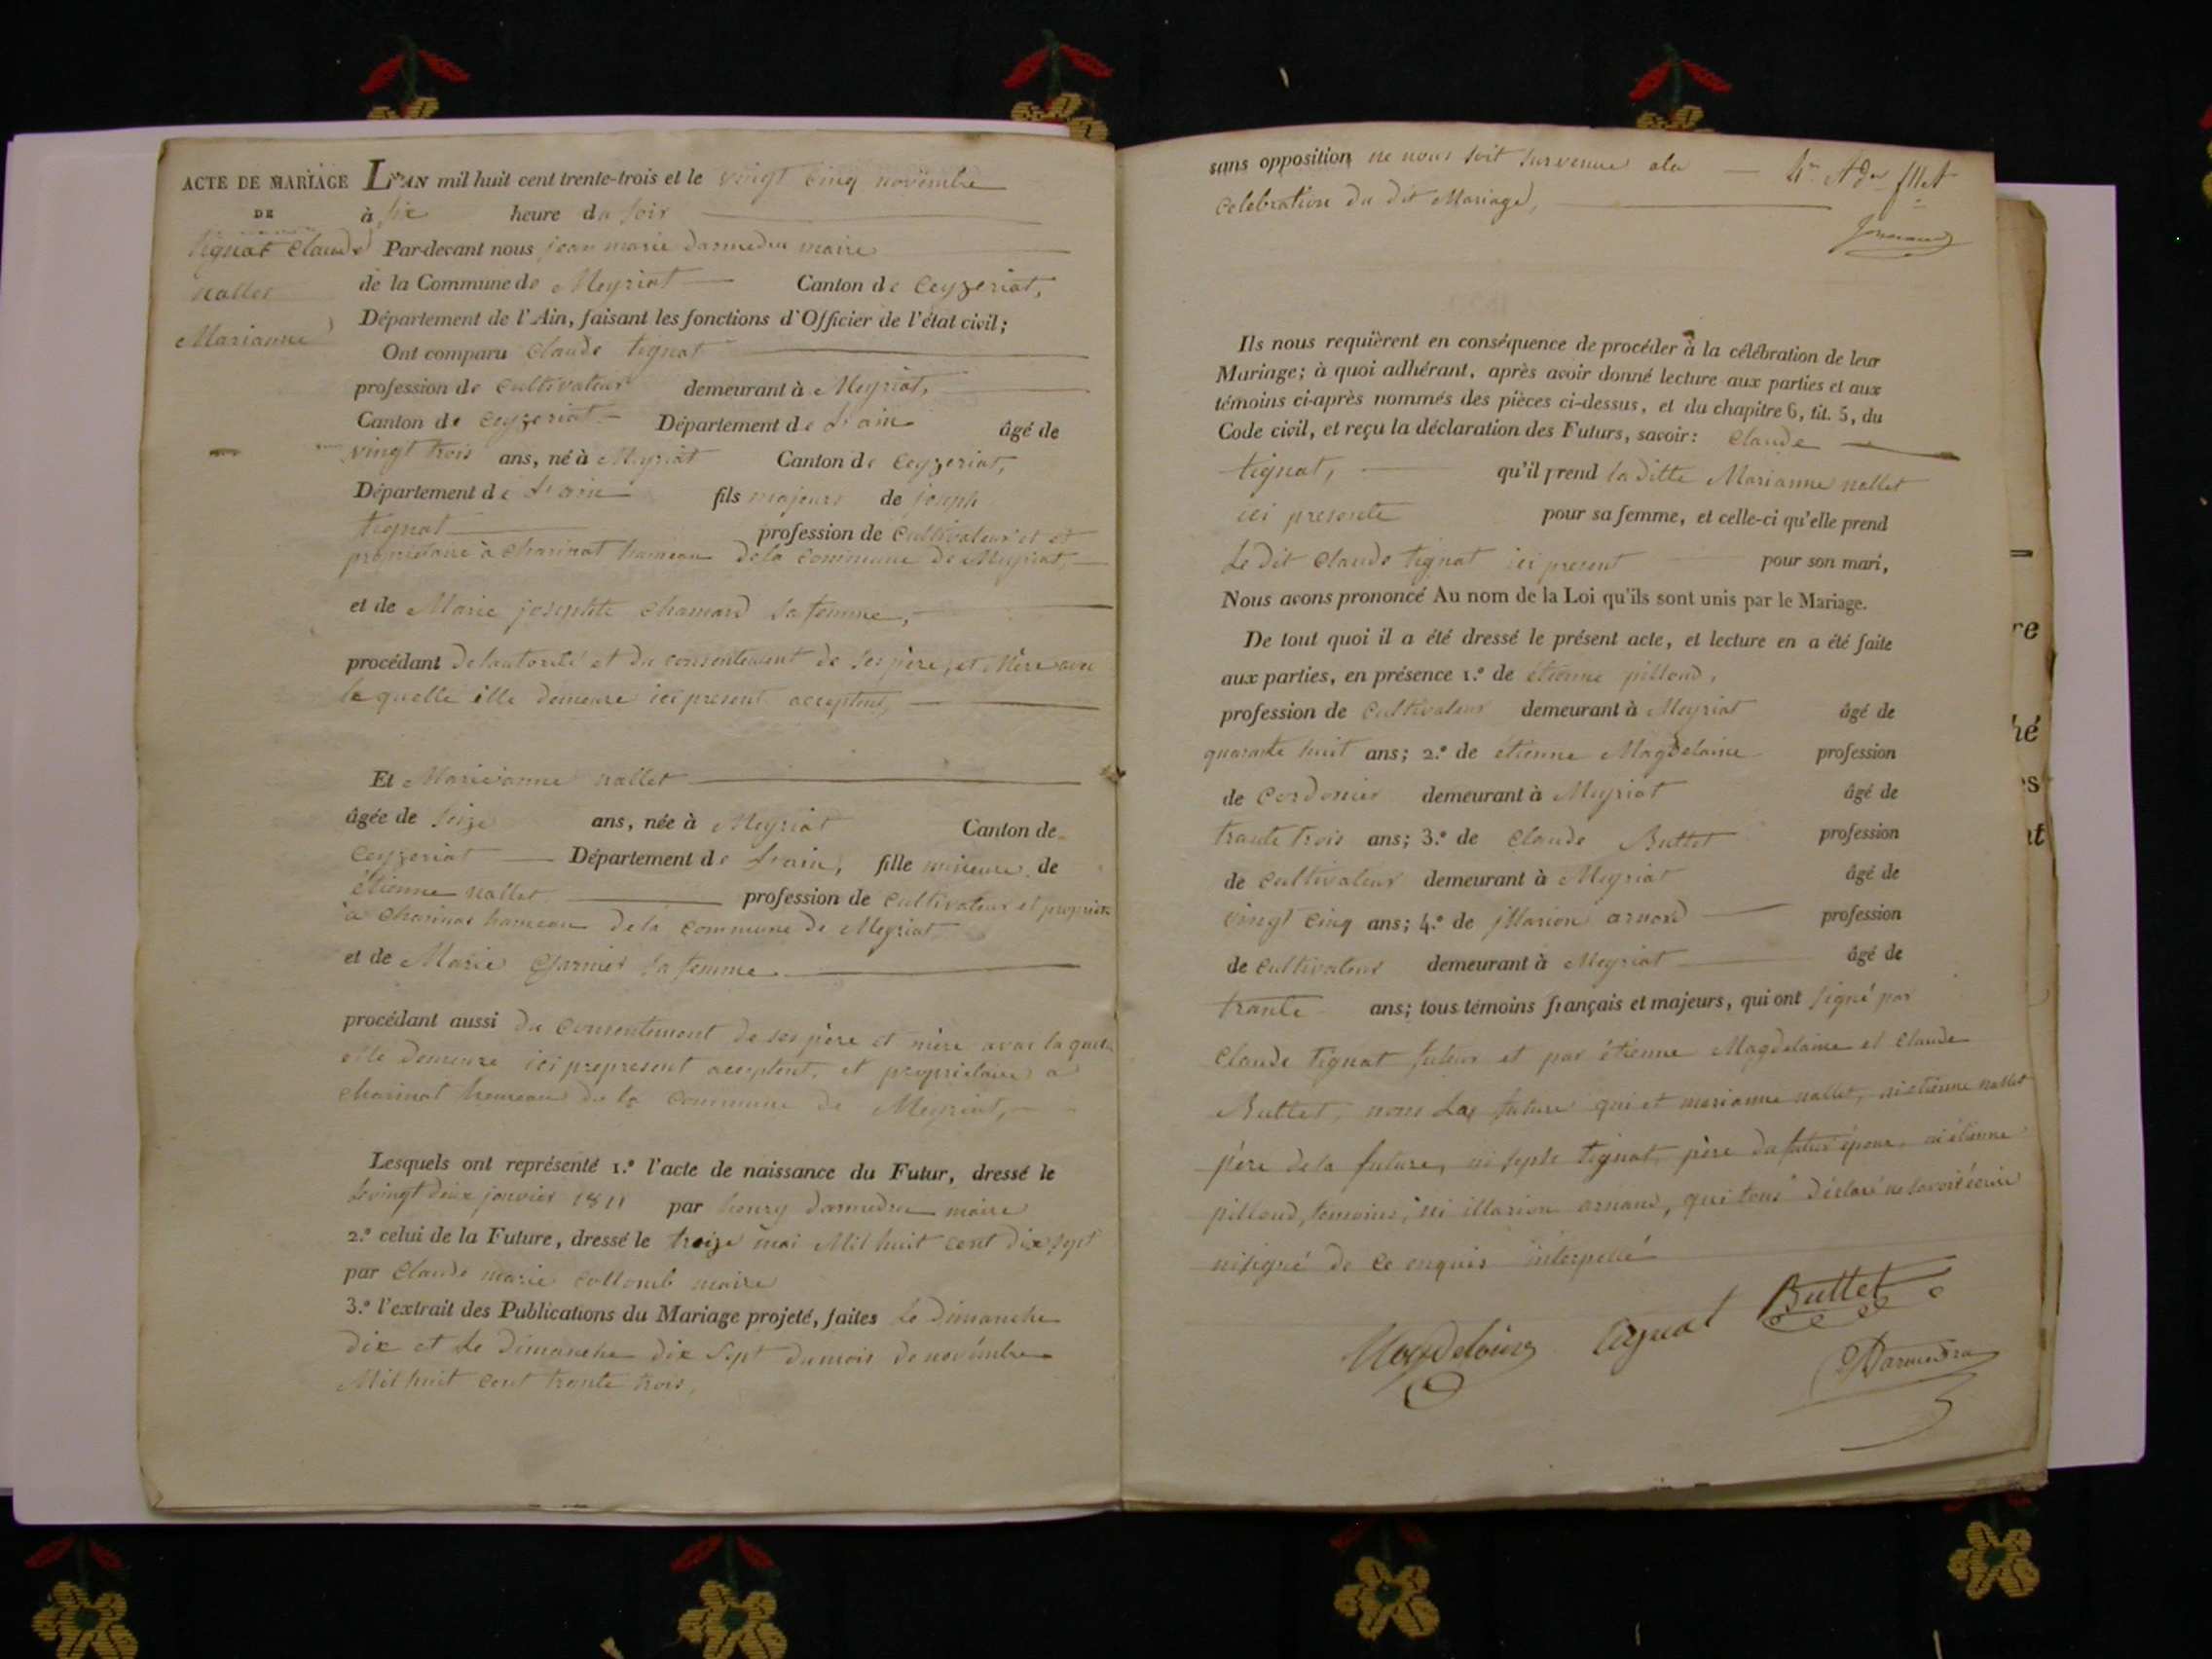 ACTE DE MARIAGE
DE
tignat Claude
nallet
Marianne
L'AN mil huit cent trente-trois et le vingt cinq novembre
à six heure du soir
Par-devant nous jean marie darmedru maire
de la Commune de Meyriat Canton de Ceyzeriat,
Département de l'Ain, faisant les fonctions d'Officier de l'état civil;
Ont comparu Claude tignat
profession de Cultivateur demeurant à Meyriat,
Canton de Ceyzeriat Département de L'ain âgé de
vingt trois ans, né à Meyriat Canton de Ceyzeriat,
Département de L'ain fils majeur de joseph
tignat profession de Cultivateur et et
propriétaire à Charinat hameau dela commune de Meyriat,
et de Marie josephte Chanard sa femme,
procédant de lautorité et du consentement de ses père, et Mère avec
la quelle ille demeure ici present acceptent,
Et Marieanne nallet
âgée de seize ans, née à Meyriat Canton de
Ceyzeriat Département de L'ain, fille mineure de
étienne nallet profession de Cultivateur et propriét
à Charinat hameau dela commune de Meyriat
et de Marie garnier sa femme
procédant aussi du Consentement de ses père et mère avec la quel
elle demeure ici prepresent acceptent, et propriétaire a
charinat hameau de la Commune de Meyriat,
Lesquels ont représenté 1.º l'acte de naissance du Futur, dressé le
le vingt deux janvier 1811 par henry darmedru maire
2.º celui de la Future, dressé le treize mai Mil huit cent dix sept
par Claude marie Collomb maire
3.º l'extrait des Publications du Mariage projeté, faites le Dimanche
dix et Le Dimanche dix sept du mois de novémbre
Mil huit cent trante trois,
sans opposition ne nous soit survenue ala
Celebration du dit Mariage,
Ils nous requièrent en conséquence de procéder à la célébration de leur
Mariage; à quoi adhérant, après avoir donné lecture aux parties et aux
témoins ci-après nommés des pièces ci-dessus, et du chapitre 6, tit. 5, du
Code civil, et reçu la déclaration des Futurs, savoir: Claude
tignat, qu'il prend la ditte Marianne nallet
ici presente pour sa femme, et celle-ci qu'elle prend
Le dit Claude tignat ici present pour son mari,
Nous avons prononcé Au nom de la Loi qu'ils sont unis par le Mariage.
De tout quoi il a été dressé le présent acte, et lecture en a été faite
aux parties, en présence 1.º de étienne pilloud,
profession de Cultivateur demeurant à Meyriat âgé de
quarante huit ans; 2.º de étienne Magdelaine profession
de Cordonier demeurant à Meyriat âgé de
trante trois ans; 3.º de Claude Buttet profession
de Cultivateur demeurant à Meyriat âgé de
vingt cinq ans; 4.º de illarion arnord profession
de Cultivateur demeurant à Meyriat âgé de
trante ans; tous témoins français et majeurs, qui ont signé par
Claude tignat futeur et par étienne Magdelaine et Claude
Buttet, non La future qui et marianne nallet, ni étienne nallet
père de la future, ni joseph tignat, père du futur époux, ni étienne
pilloud, temoins, ni illarion arnaud, qui tous déclaré ne savoir écrire
ni signé de ce enquis interpellé
Magdeleine tignat Buttet
Darmedru